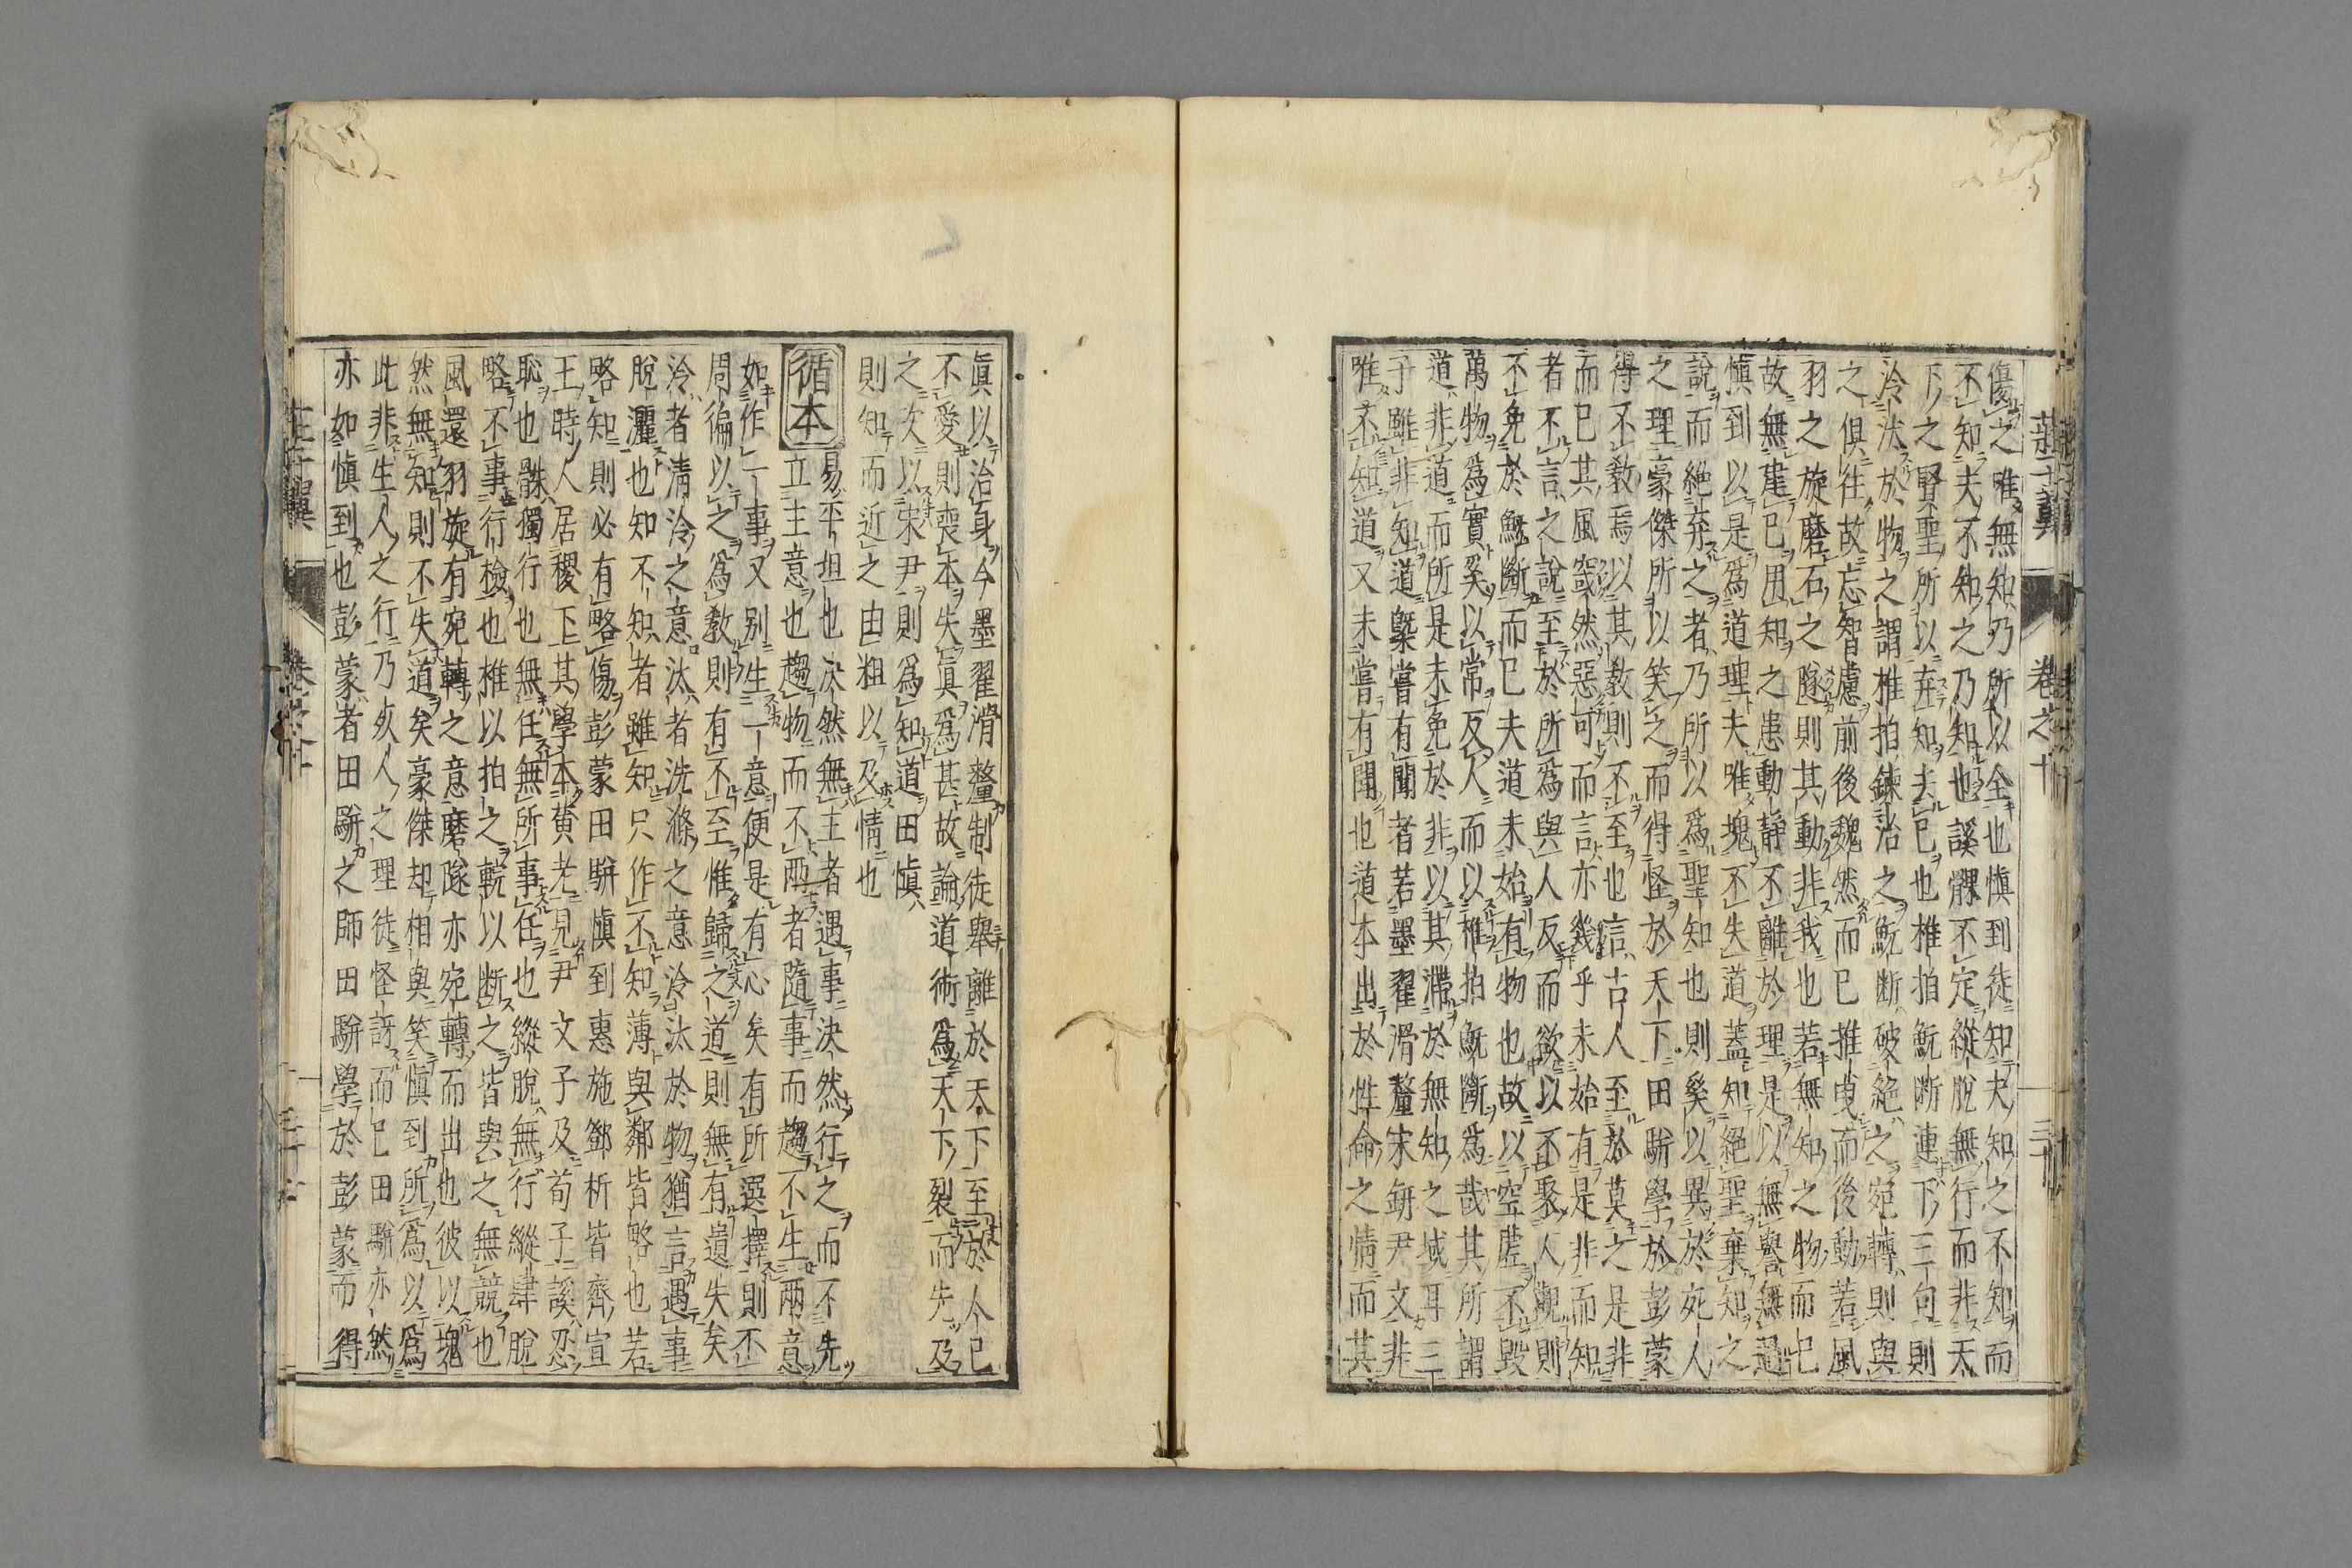 傷之唯無知乃所以全也愼到徒知夫知之不知而
不知夫不知之乃知也謑髁不定縱脫無行而非天
下之賢聖所以弃知夫已也椎拍輐斷連下三句則
泠汰於物之謂椎拍鍊治之輐斷破絕之宛轉則與
之俱往故忘智慮前後魏然而已推曳而後動若風
羽之旋磨石之隧則其動非我也若無知之物而已
故無建已用知之患動靜不離於理是以無譽無過
愼到以是爲道理夫唯塊不失道蓋知絕聖棄知之
說而絕弃之者乃所以爲聖知也則奚以異於死人
之理豪傑所以笑之而得怪於天下田駢學於彭蒙
得不敎焉以其敎則不至也言古人至於莫之是非
而已其風窢然惡可而言亦幾乎未始有是非而知
者不言之說至於所爲與人反而欲以不聚人觀則
不免於魭斷而已夫道未始有物也故以空虛不毀
萬物爲實奚以常反人而以椎拍輐斷爲哉其所謂
道非道而所是未免於非以其滯於無知之域耳三
子雖非知道槩嘗有聞者若墨翟滑釐宋鈃尹文非
唯不知道又未嘗有聞也道本出於性命之情而其
莊子翼 卷之十
眞以治身今墨翟滑釐制徒舉離於天下至於人已
不愛則喪本失眞爲甚故論道術爲天下裂而先及
之次以宋尹則爲知道田愼
則知而近之由粗以及情也
循本
易平坦也决然無主者遇事決然行之而不先
立主意也趨物而不兩者隨事而趨不生兩意
如作一事又別生一意便是有心矣有所選擇則不
周徧以之爲敎則有不至惟歸之道則無有遺失矣
泠者淸泠之意汰者洗滌之意泠汰於物猶言遇事
脫灑也知不知者雖知只作不知薄與鄰皆略也若
略知則必有略傷彭蒙田駢愼到惠施鄧析皆齊宣
王時人居稷下其學本黃老見尹文子及荀子謑忍
恥也髁獨行也無任無所事任也縱脫無行縱肆脫
略不事行檢也椎以拍之輐以断之皆與之無競也
風還羽旋有宛轉之意磨隧亦宛轉而出也彼以塊
然無知則不失道矣豪傑却相與笑愼到所爲以爲
此非生人之行乃死人之理徒怪訝而已田駢亦然
亦如愼到也彭蒙者田駢之師田駢學於彭蒙而得